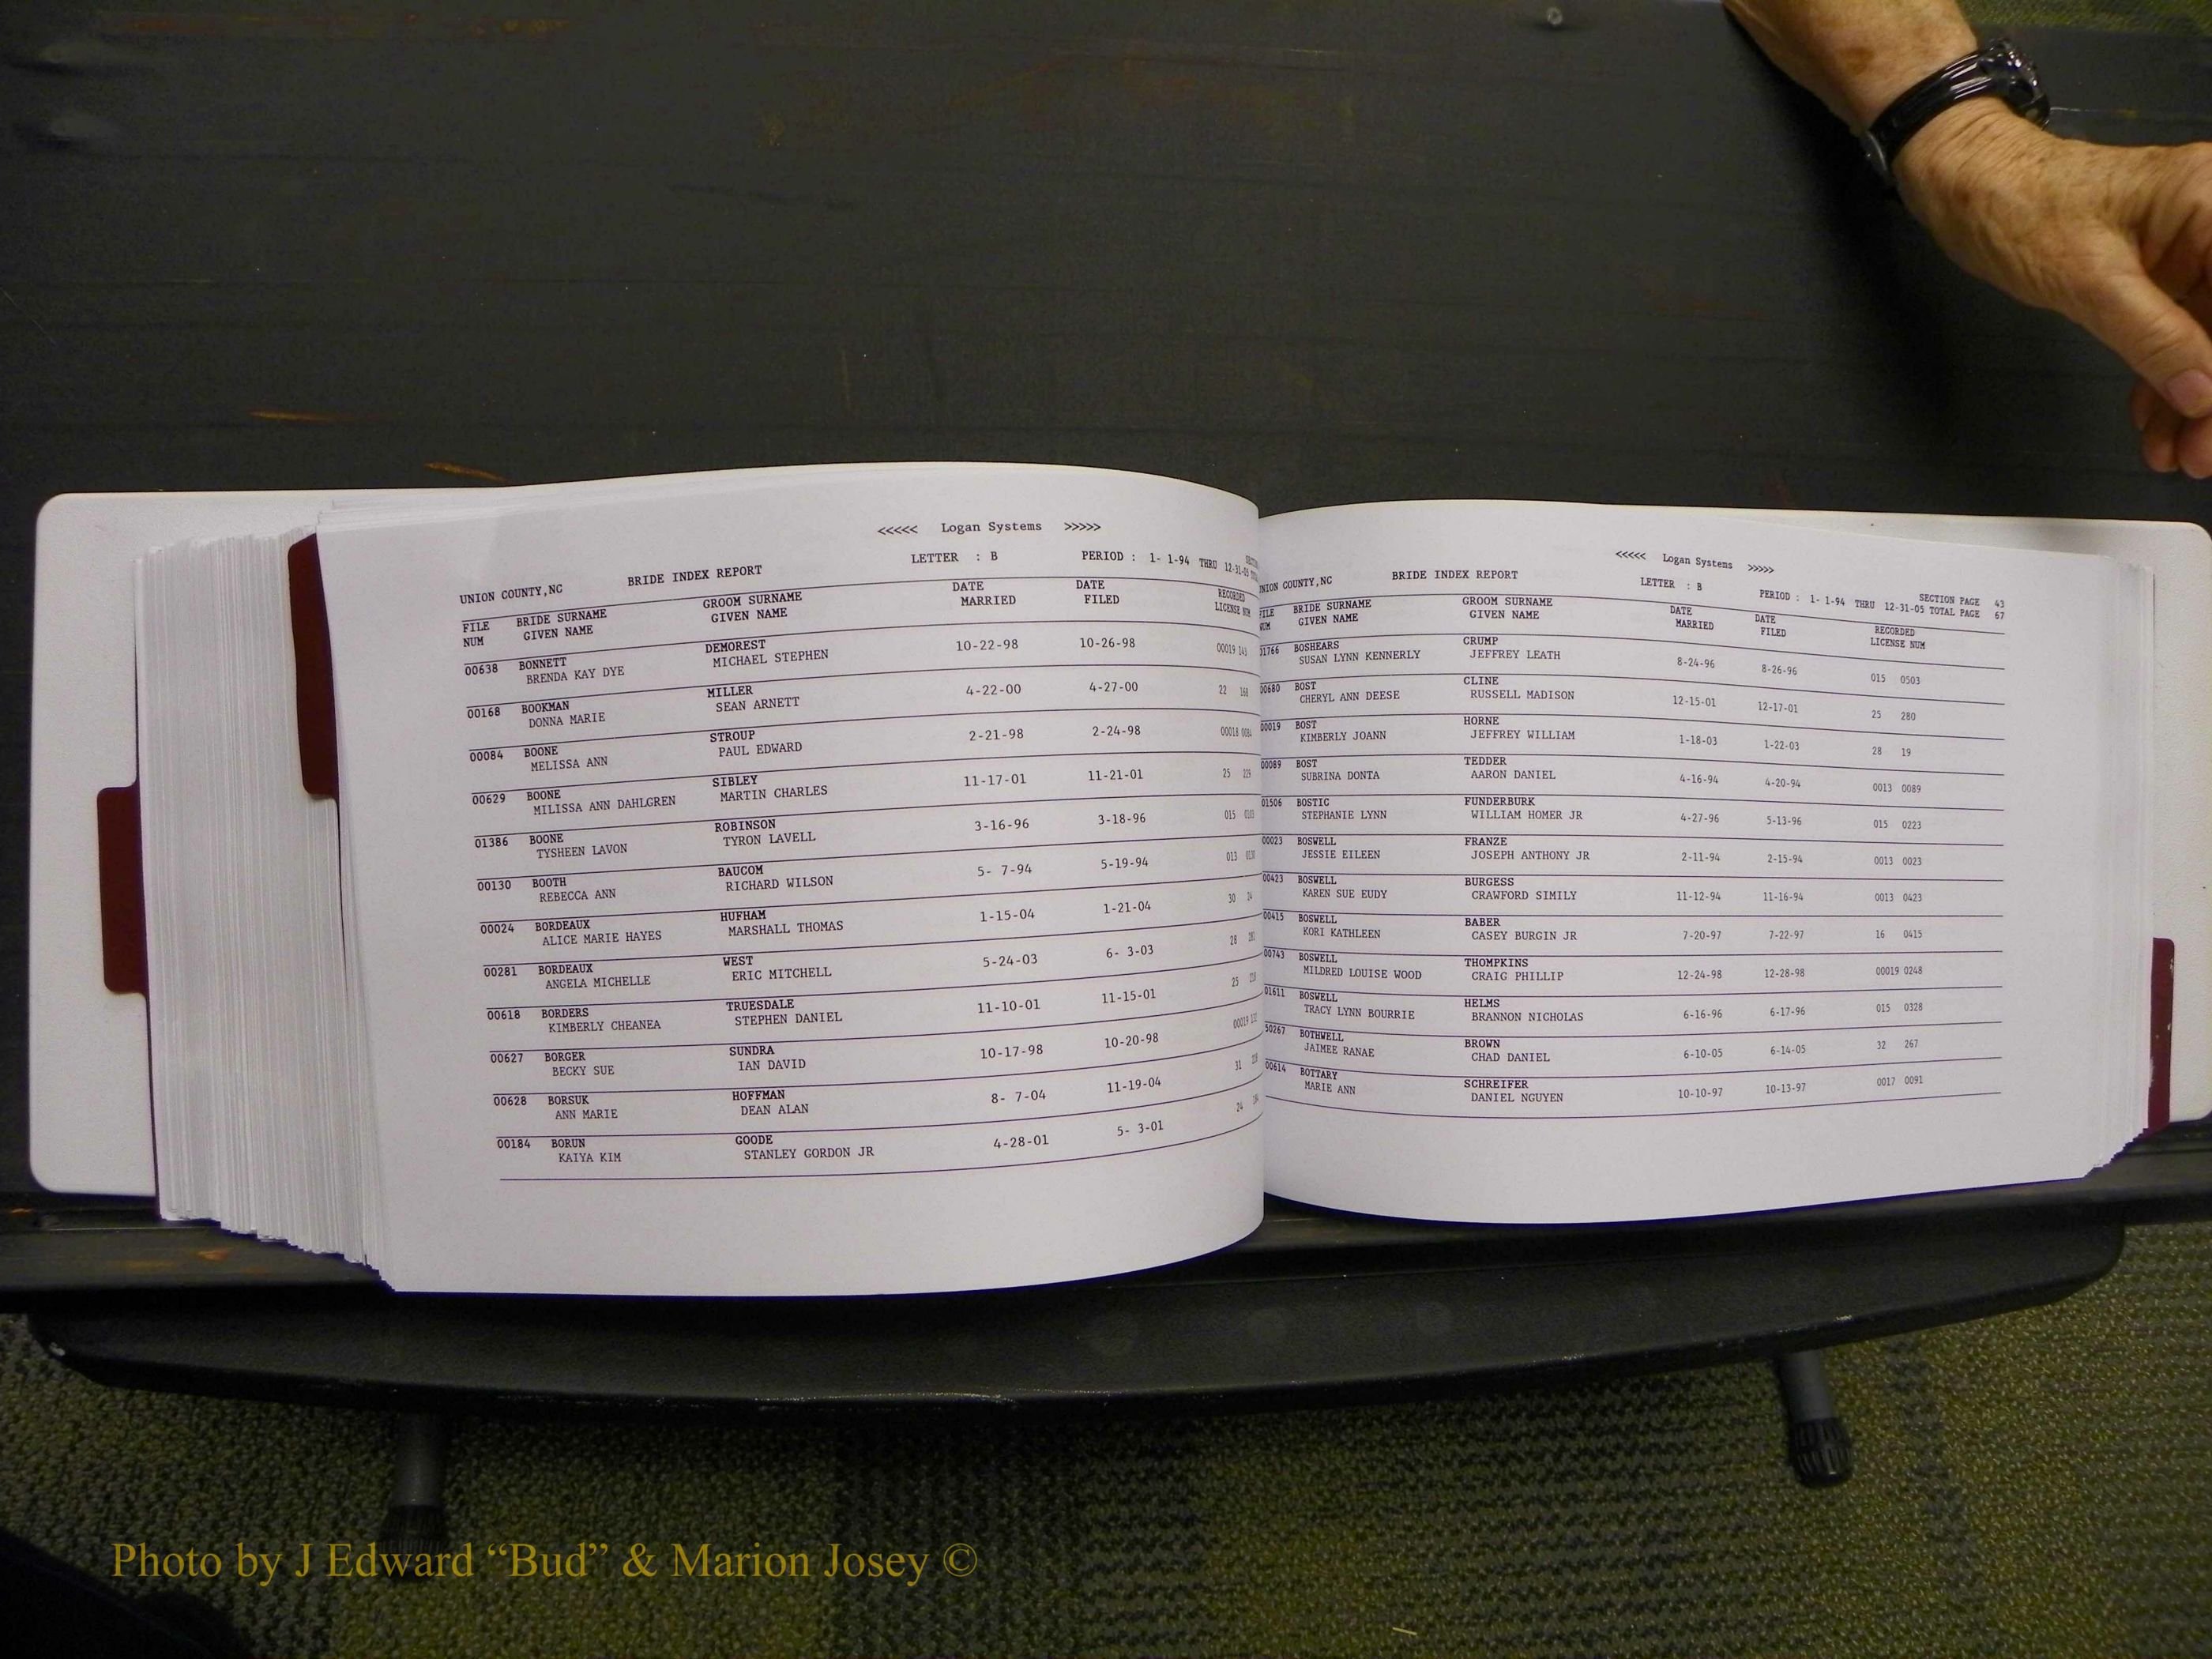 <<<<< Logan Systems >>>>>
UNION COUNTY,NC BRIDE INDEX REPORT LETTER : B PERIOD : 1- 1-94 THRU 12-31-05
FILE BRIDE SURNAME GROOM SURNAME DATE DATE RECORDED
NUM GIVEN NAME GIVEN NAME MARRIED FILED LICENSE NUM
00638 BONNETT DEMOREST 10-22-98 10-26-98 00019 143
BRENDA KAY DYE MICHAEL STEPHEN
00168 BOOKMAN MILLER 4-22-00 4-27-00 22 168
DONNA MARIE SEAN ARNETT
00084 BOONE STROUP 2-21-98 2-24-98 00018 0084
MELISSA ANN PAUL EDWARD
00629 BOONE SIBLEY 11-17-01 11-21-01 25 229
MILISSA ANN DAHLGREN MARTIN CHARLES
01386 BOONE ROBINSON 3-16-96 3-18-96 015
TYSHEEN LAVON TYRON LAVELL
00130 BOOTH BAUCOM 5- 7-94 5-19-94 013 0130
REBECCA ANN RICHARD WILSON
00024 BORDEAUX HUFHAM 1-15-04 1-21-04 30 24
ALICE MARIE HAYES MARSHALL THOMAS
00281 BORDEAUX WEST 5-24-03 6- 3-03 28 281
ANGELA MICHELLE ERIC MITCHELL
00618 BORDERS TRUESDALE 11-10-01 11-15-01 25
KIMBERLY CHEANEA STEPHEN DANIEL
00627 BORGER SUNDRA 10-17-98 10-20-98 00019
BECKY SUE IAN DAVID
00628 BORSUK HOFFMAN 8- 7-04 11-19-04 31
ANN MARIE DEAN ALAN
00184 BORUN GOODE 4-28-01 5- 3-01 24
KAIYA KIM STANLEY GORDON JR
<<<<< Logan Systems >>>>>
UNION COUNTY,NC BRIDE INDEX REPORT LETTER : B SECTION PAGE 43
PERIOD : 1- 1-94 THRU 12-31-05 TOTAL PAGE 67
FILE BRIDE SURNAME GROOM SURNAME DATE DATE RECORDED
NUM GIVEN NAME GIVEN NAME MARRIED FILED LICENSE NUM
01766 BOSHEARS CRUMP 8-24-96 8-26-96 015 0503
SUSAN LYNN KENNERLY JEFFREY LEATH
00680 BOST CLINE 12-15-01 12-17-01 25 280
CHERYL ANN DEESE RUSSELL MADISON
00019 BOST HORNE 1-18-03 1-22-03 28 19
KIMBERLY JOANN JEFFREY WILLIAM
00089 BOST TEDDER 4-16-94 4-20-94 0013 0089
SUBRINA DONTA AARON DANIEL
01506 BOSTIC FUNDERBURK 4-27-96 5-13-96 015 0223
STEPHANIE LYNN WILLIAM HOMER JR
00023 BOSWELL FRANZE 2-11-94 2-15-94 0013 0023
JESSIE EILEEN JOSEPH ANTHONY JR
00423 BOSWELL BURGESS 11-12-94 11-16-94 0013 0423
KAREN SUE EUDY CRAWFORD SIMILY
00415 BOSWELL BABER 7-20-97 7-22-97 16 0415
KORI KATHLEEN CASEY BURGIN JR
00743 BOSWELL THOMPKINS 12-24-98 12-28-98 00019 0248
MILDRED LOUISE WOOD CRAIG PHILLIP
01611 BOSWELL HELMS 6-16-96 6-17-96 015 0328
TRACY LYNN BOURRIE BRANNON NICHOLAS
50267 BOTHWELL BROWN 6-10-05 6-14-05 32 267
JAIMEE RANAE CHAD DANIEL
00614 BOTTARY SCHREIFER 10-10-97 10-13-97 0017 0091
MARIE ANN DANIEL NGUYEN
Photo by J Edward “Bud” & Marion Josey ©